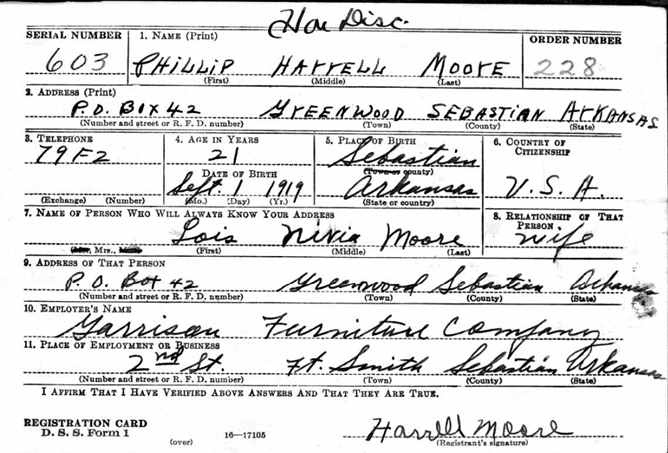 Hon Disc.
SERIAL NUMBER 1. NAME (Print) ORDER NUMBER
603 PHILLIP HARRELL MOORE 228
(First) (Middle) (Last)
2. ADDRESS (Print)
P.O. BOX 42 GREENWOOD SEBASTIAN ARKANSAS
(Number and street or R. F. D. number) (Town) (County) (State)
3. TELEPHONE 4. AGE IN YEARS 5. PLACE OF BIRTH 6. COUNTRY OF CITIZENSHIP
79F2 21 Sebastian
DATE OF BIRTH (Town or county)
Sept. 1 1919 Arkansas U.S.A.
(Exchange) (Number) (Mo.) (Day) (Yr.) (State or country)
7. NAME OF PERSON WHO WILL ALWAYS KNOW YOUR ADDRESS 8. RELATIONSHIP OF THAT PERSON
Lois Nivia Moore wife
Mrs., (First) (Middle) (Last)
9. ADDRESS OF THAT PERSON
P.O. Box 42 Greenwood Sebastian Arkansas
(Number and street or R. F. D. number) (Town) (County) (State)
10. EMPLOYER'S NAME
Garrison Furniture Company
11. PLACE OF EMPLOYMENT OR BUSINESS
2nd St. Ft. Smith Sebastian Arkansas
(Number and street or R. F. D. number) (Town) (County) (State)
I AFFIRM THAT I HAVE VERIFIED ABOVE ANSWERS AND THAT THEY ARE TRUE.
REGISTRATION CARD
D. S. S. Form 1 (over) 16—17105 Harrell Moore
(Registrant's signature)